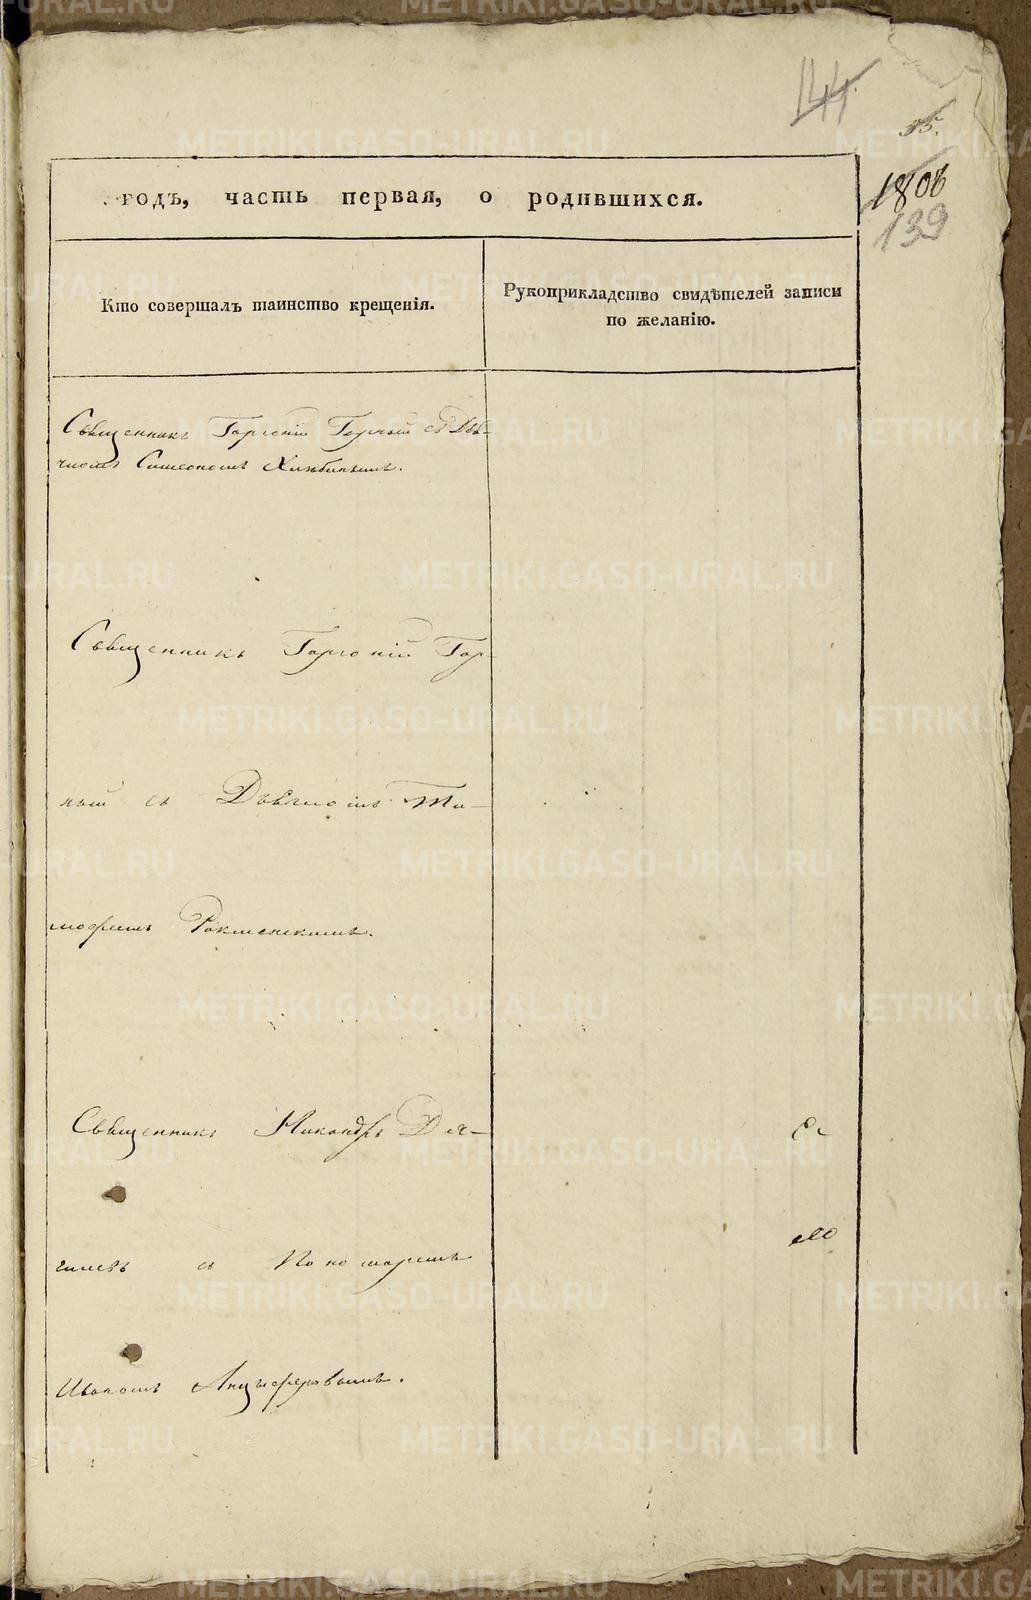 144
55.
годъ, часть первая, о родившихся.
1806
139
Кто совершалъ таинство крещенія.
Рукоприкладство свидѣтелей записи
по желанію.
Священникъ Горгоній Горный съ Дья-
чкомъ Симеономъ Хлѣбинымъ.
Священникъ Горгоній Гор-
ный съ Дьячкомъ Ти-
мофеемъ
Священникъ Никандръ
съ Пономаремъ
Иваномъ Анцыферовымъ.
METRIKI.GASO-URAL.RU